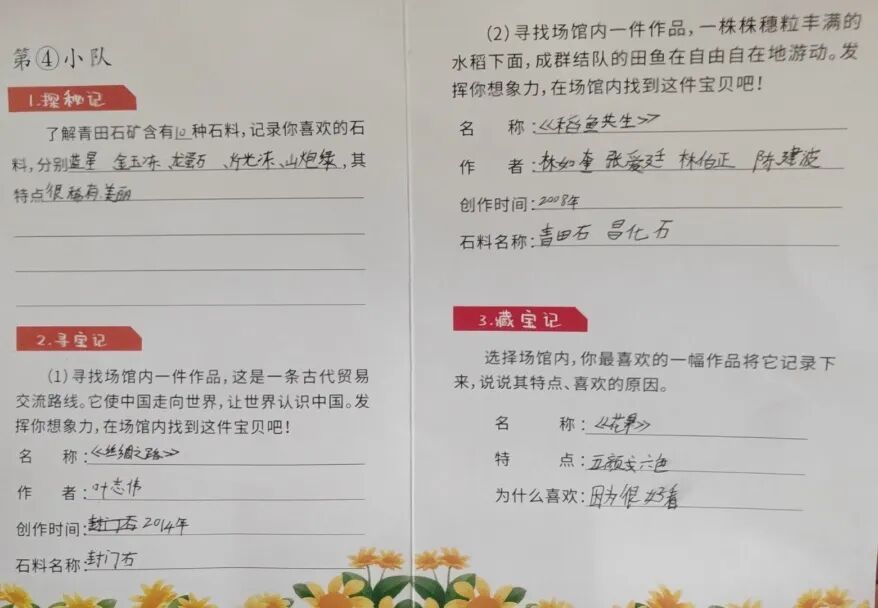 第④小队
1.探秘记
了解青田石矿含有10种石料，记录你喜欢的石
料，分别蓝星 金玉冻 龙蛋石、灯光冻、山炮绿，其
特点很稀有.美丽
2.寻宝记
（1）寻找场馆内一件作品，这是一条古代贸易
交流路线。它使中国走向世界，让世界认识中国。发
挥你想象力，在场馆内找到这件宝贝吧！
名 称：《丝绸之路》
作 者：叶志伟
创作时间：封门石 2014年
石料名称：封门石
（2）寻找场馆内一件作品，一株株穗粒丰满的
水稻下面，成群结队的田鱼在自由自在地游动。发
挥你想象力，在场馆内找到这件宝贝吧！
名 称：《稻鱼共生》
作 者：林如奎 张爱廷 林伯正 陈建波
创作时间：2008年
石料名称：青田石 昌化石
3.藏宝记
选择场馆内，你最喜欢的一幅作品将它记录下
来，说说其特点、喜欢的原因。
名 称：《花果》
特 点：五颜六色
为什么喜欢：因为很好看